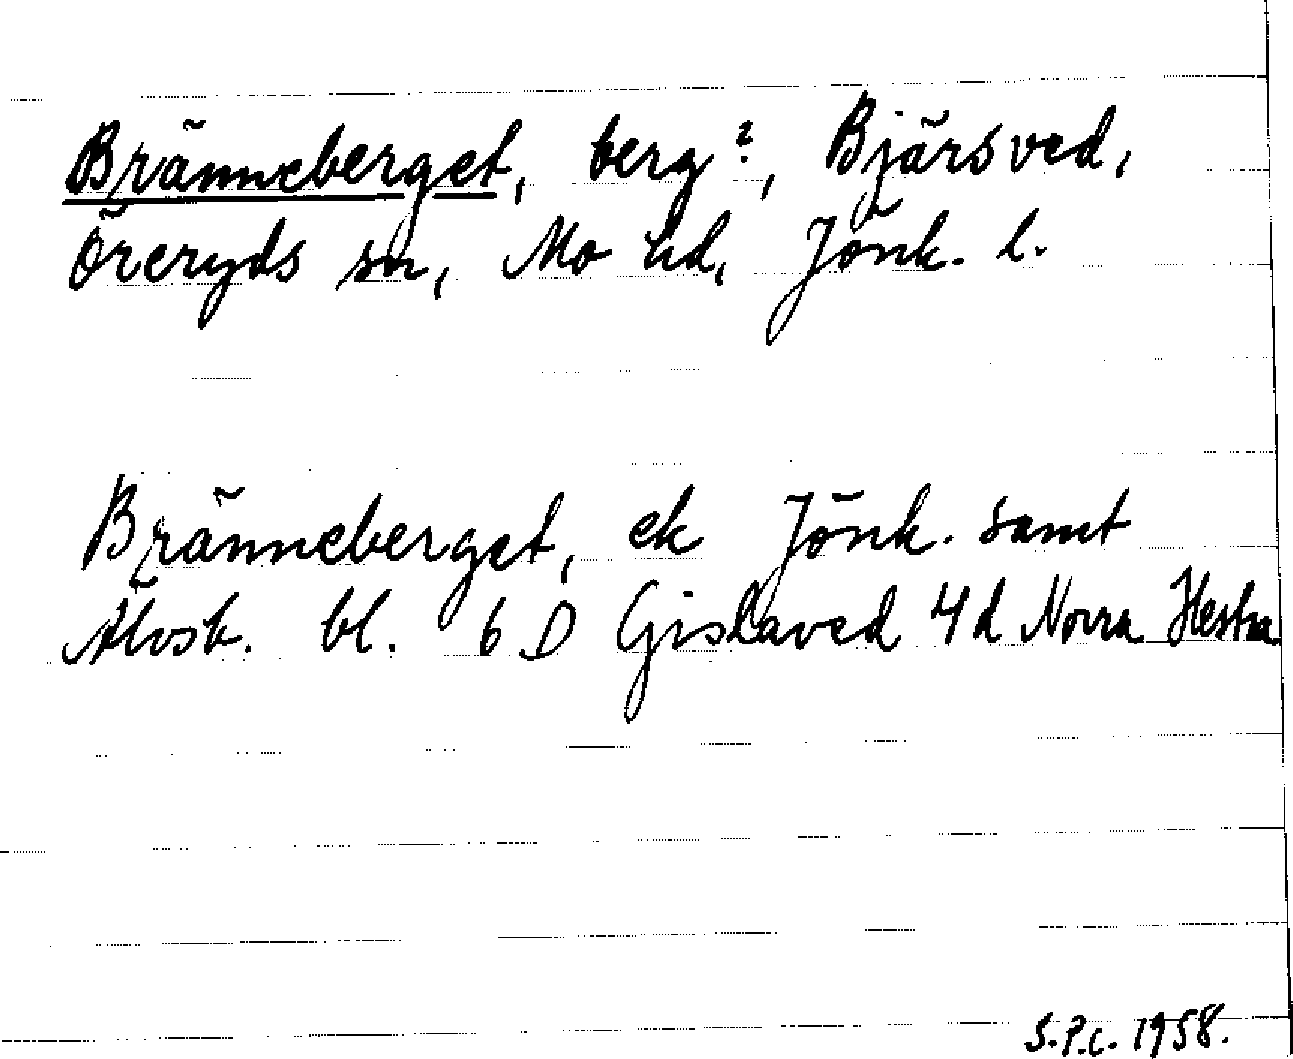 Bränneberget, berg?, Bjärsved,
Öreryds sn, Mo hd, Jönk. l.
Bränneberget, ek Jönk. samt
Älvsb. bl. 6 D Gislaved 4d Norra Hestra
S.P.c. 1958.